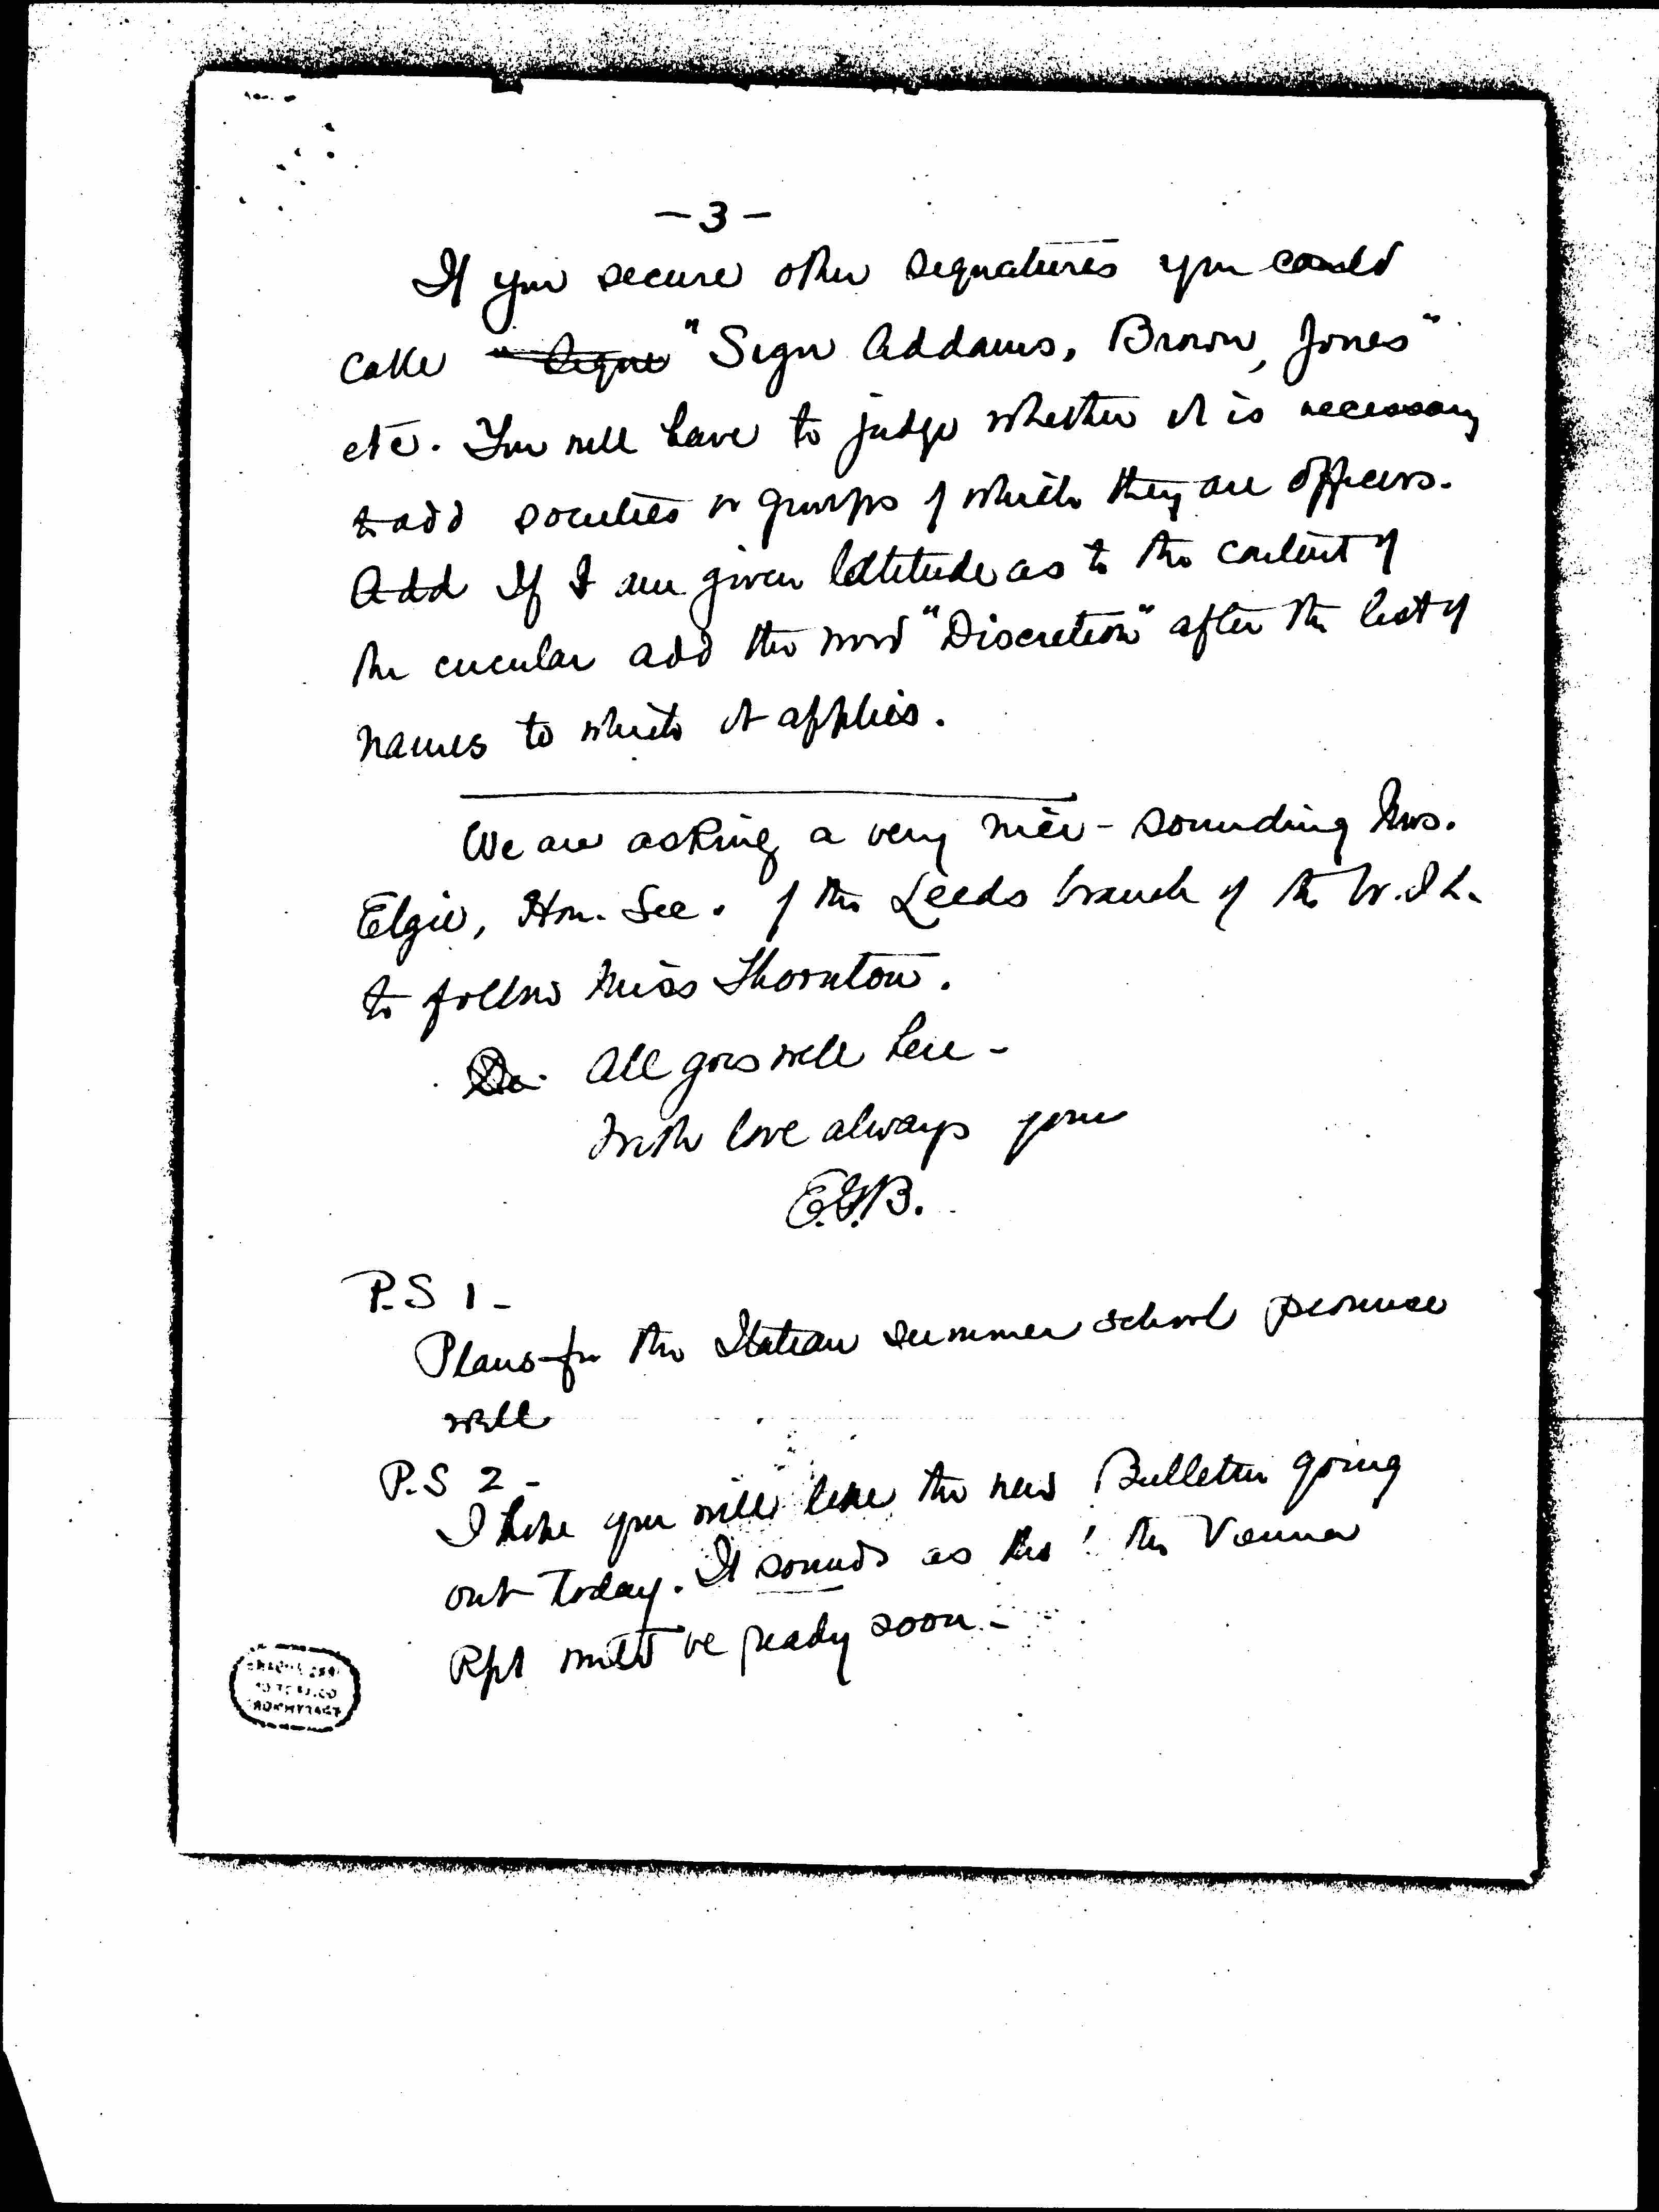 -3-
If you secure other signatures you could
cable "Signe "Sign Addams, Brown, Jones"
etc. You will have to judge whether it is necessary
to add societies or groups of which they are officers.
Add If I am given latitude as to the content of
the circular add the word "Discretion" after the list of
names to which it applies.
We are asking a very nice-sounding Mrs.
Elgie, Hon. Sec. of the Leeds branch of the W.I.L.
to follow Miss Thornton.
All goes well here -
With love always your
E.G.B.
P.S 1 -
Plans for the Italian summer school promise
well
P.S 2 -
I hope you will like the new Bulletin going
out today. It sounds as tho' the Vienna
Rpt would be ready soon -